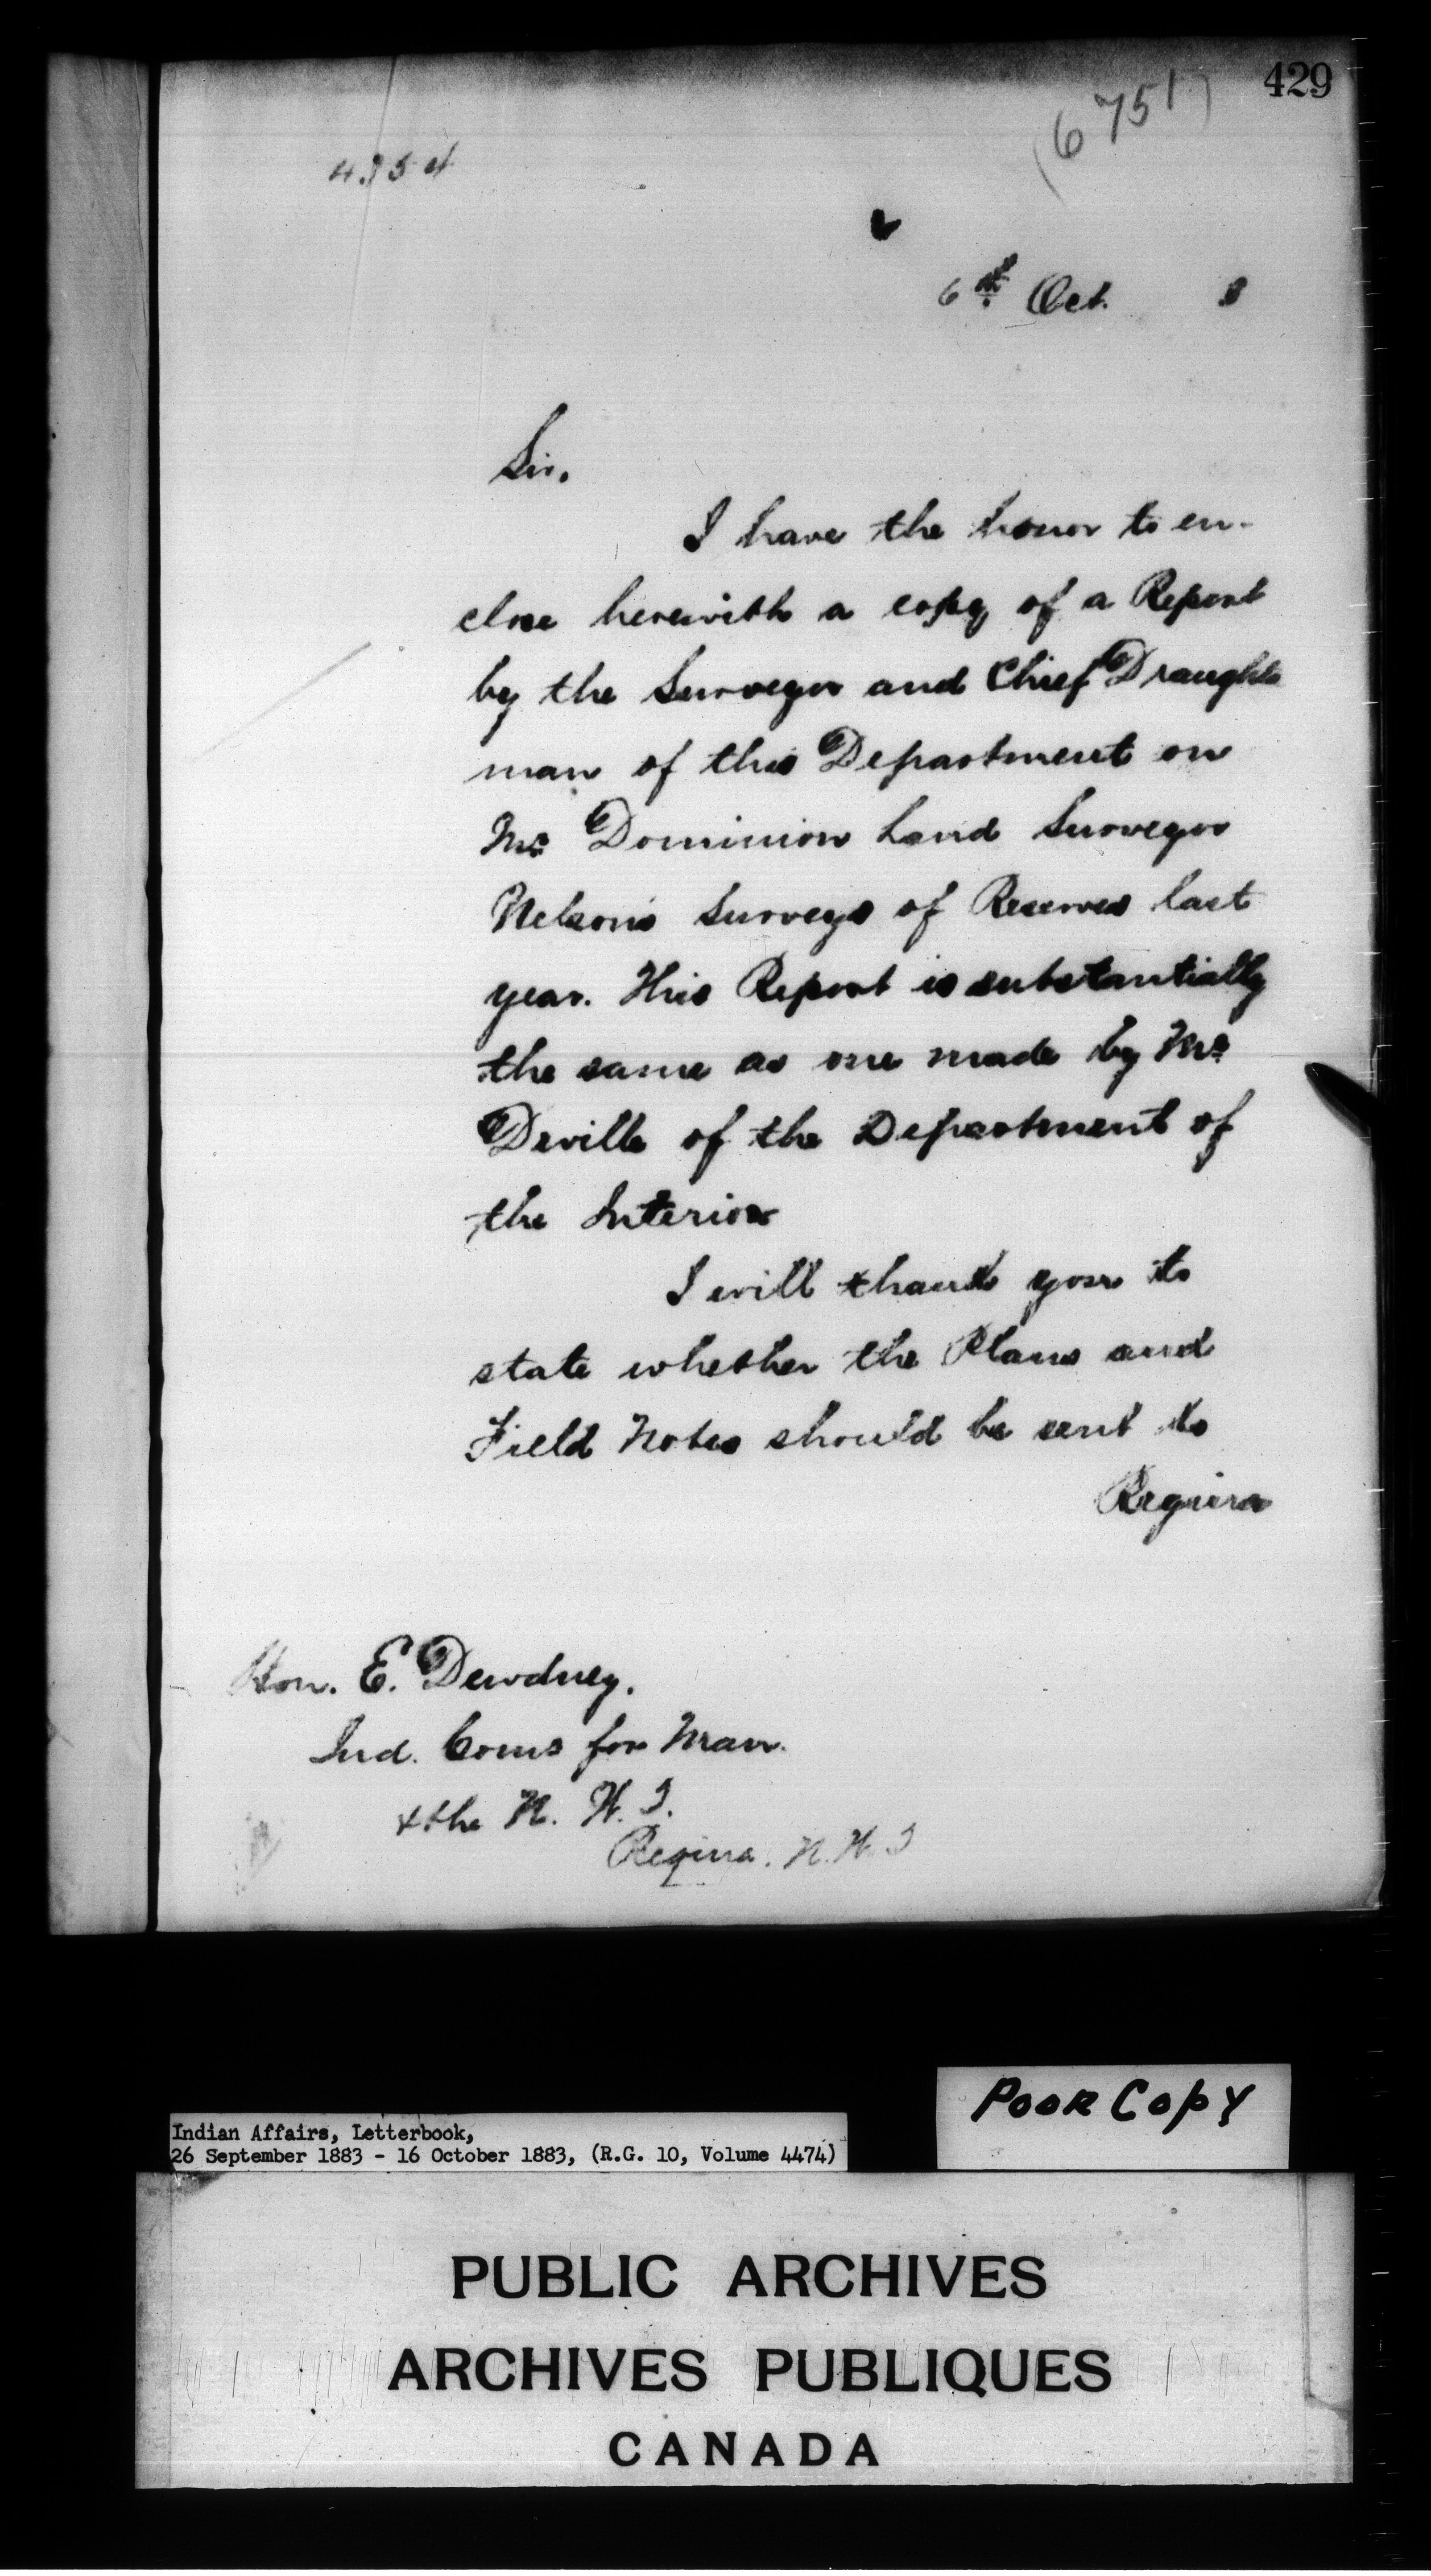 429
(6751)
6th Oct. 3
Sir,
I have the honor to en-
close herewith a copy of a Report
by the Surveyor and Chief Draughts
man of this Department on
Mr. Dominion Land Surveyor
Nelson's Surveys of Reserves last
year. His Report is substantially
the same as one made by Mr.
Deville of the Department of
the Interior
I will thank you to
state whether the Plans and
Field Notes should be sent to
Regina
Hon. E. Dewdney,
Ind. Coms for Man.
& the N. W. T.
Regina. N. W. T
POOR COPY
Indian Affairs, Letterbook,
26 September 1883 - 16 October 1883, (R.G. 10, Volume 4474)
PUBLIC ARCHIVES
ARCHIVES PUBLIQUES
CANADA